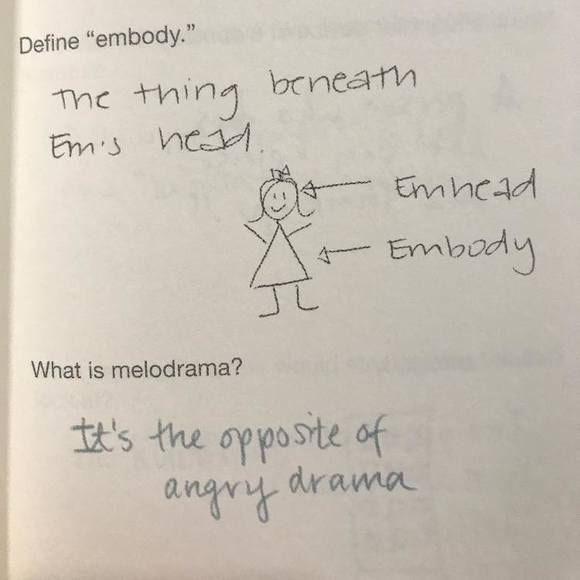 Define “embody.”
The thing beneath
Em's head.
Emhead
Embody
What is melodrama?
It's the opposite of
angry drama